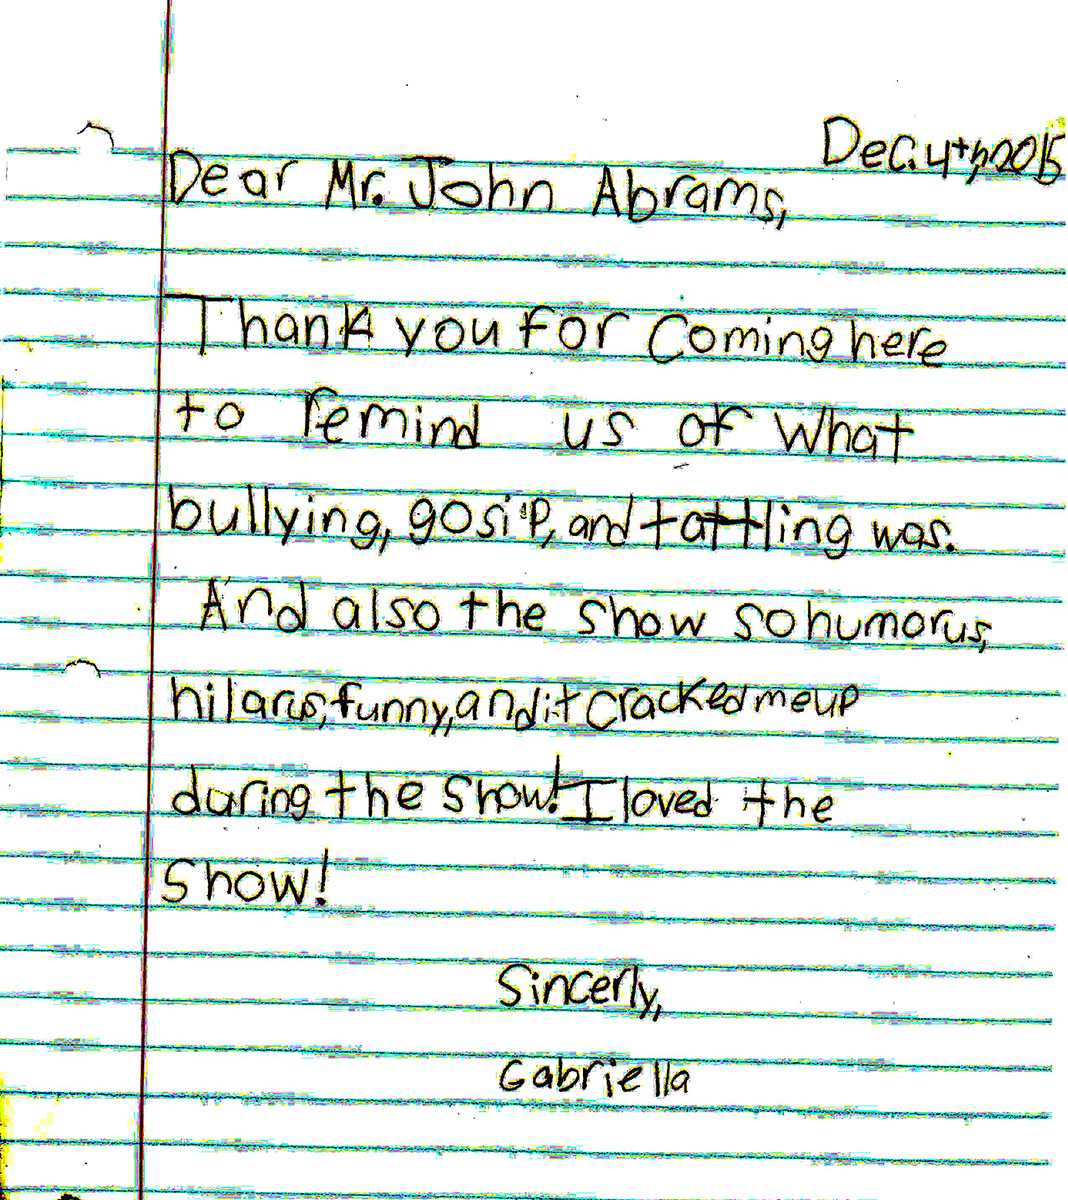 Dec. 4th, 2015
Dear Mr. John Abrams,
Thank you for coming here
to remind us of what
bullying, gosip, and tattling was.
And also the show so humorus,
hilarus, funny, and it cracked me up
during the show! I loved the
show!
Sincerly,
Gabriella